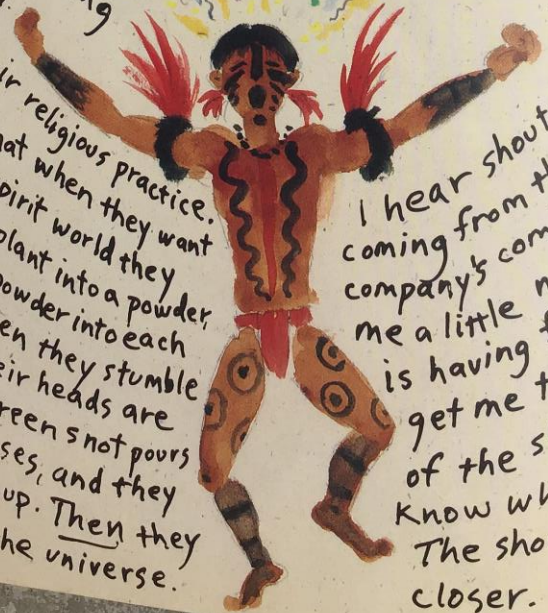 ng
religious practice.
at when they want
spirit world they
plant into a powder,
powder into each
en they stumble
eir heads are
reen snot pours
ses, and they
up. Then they
he universe.
I hear shout
coming from th
company's com
me a little n
is having f
get me t
of the s
know wh
The sho
closer.